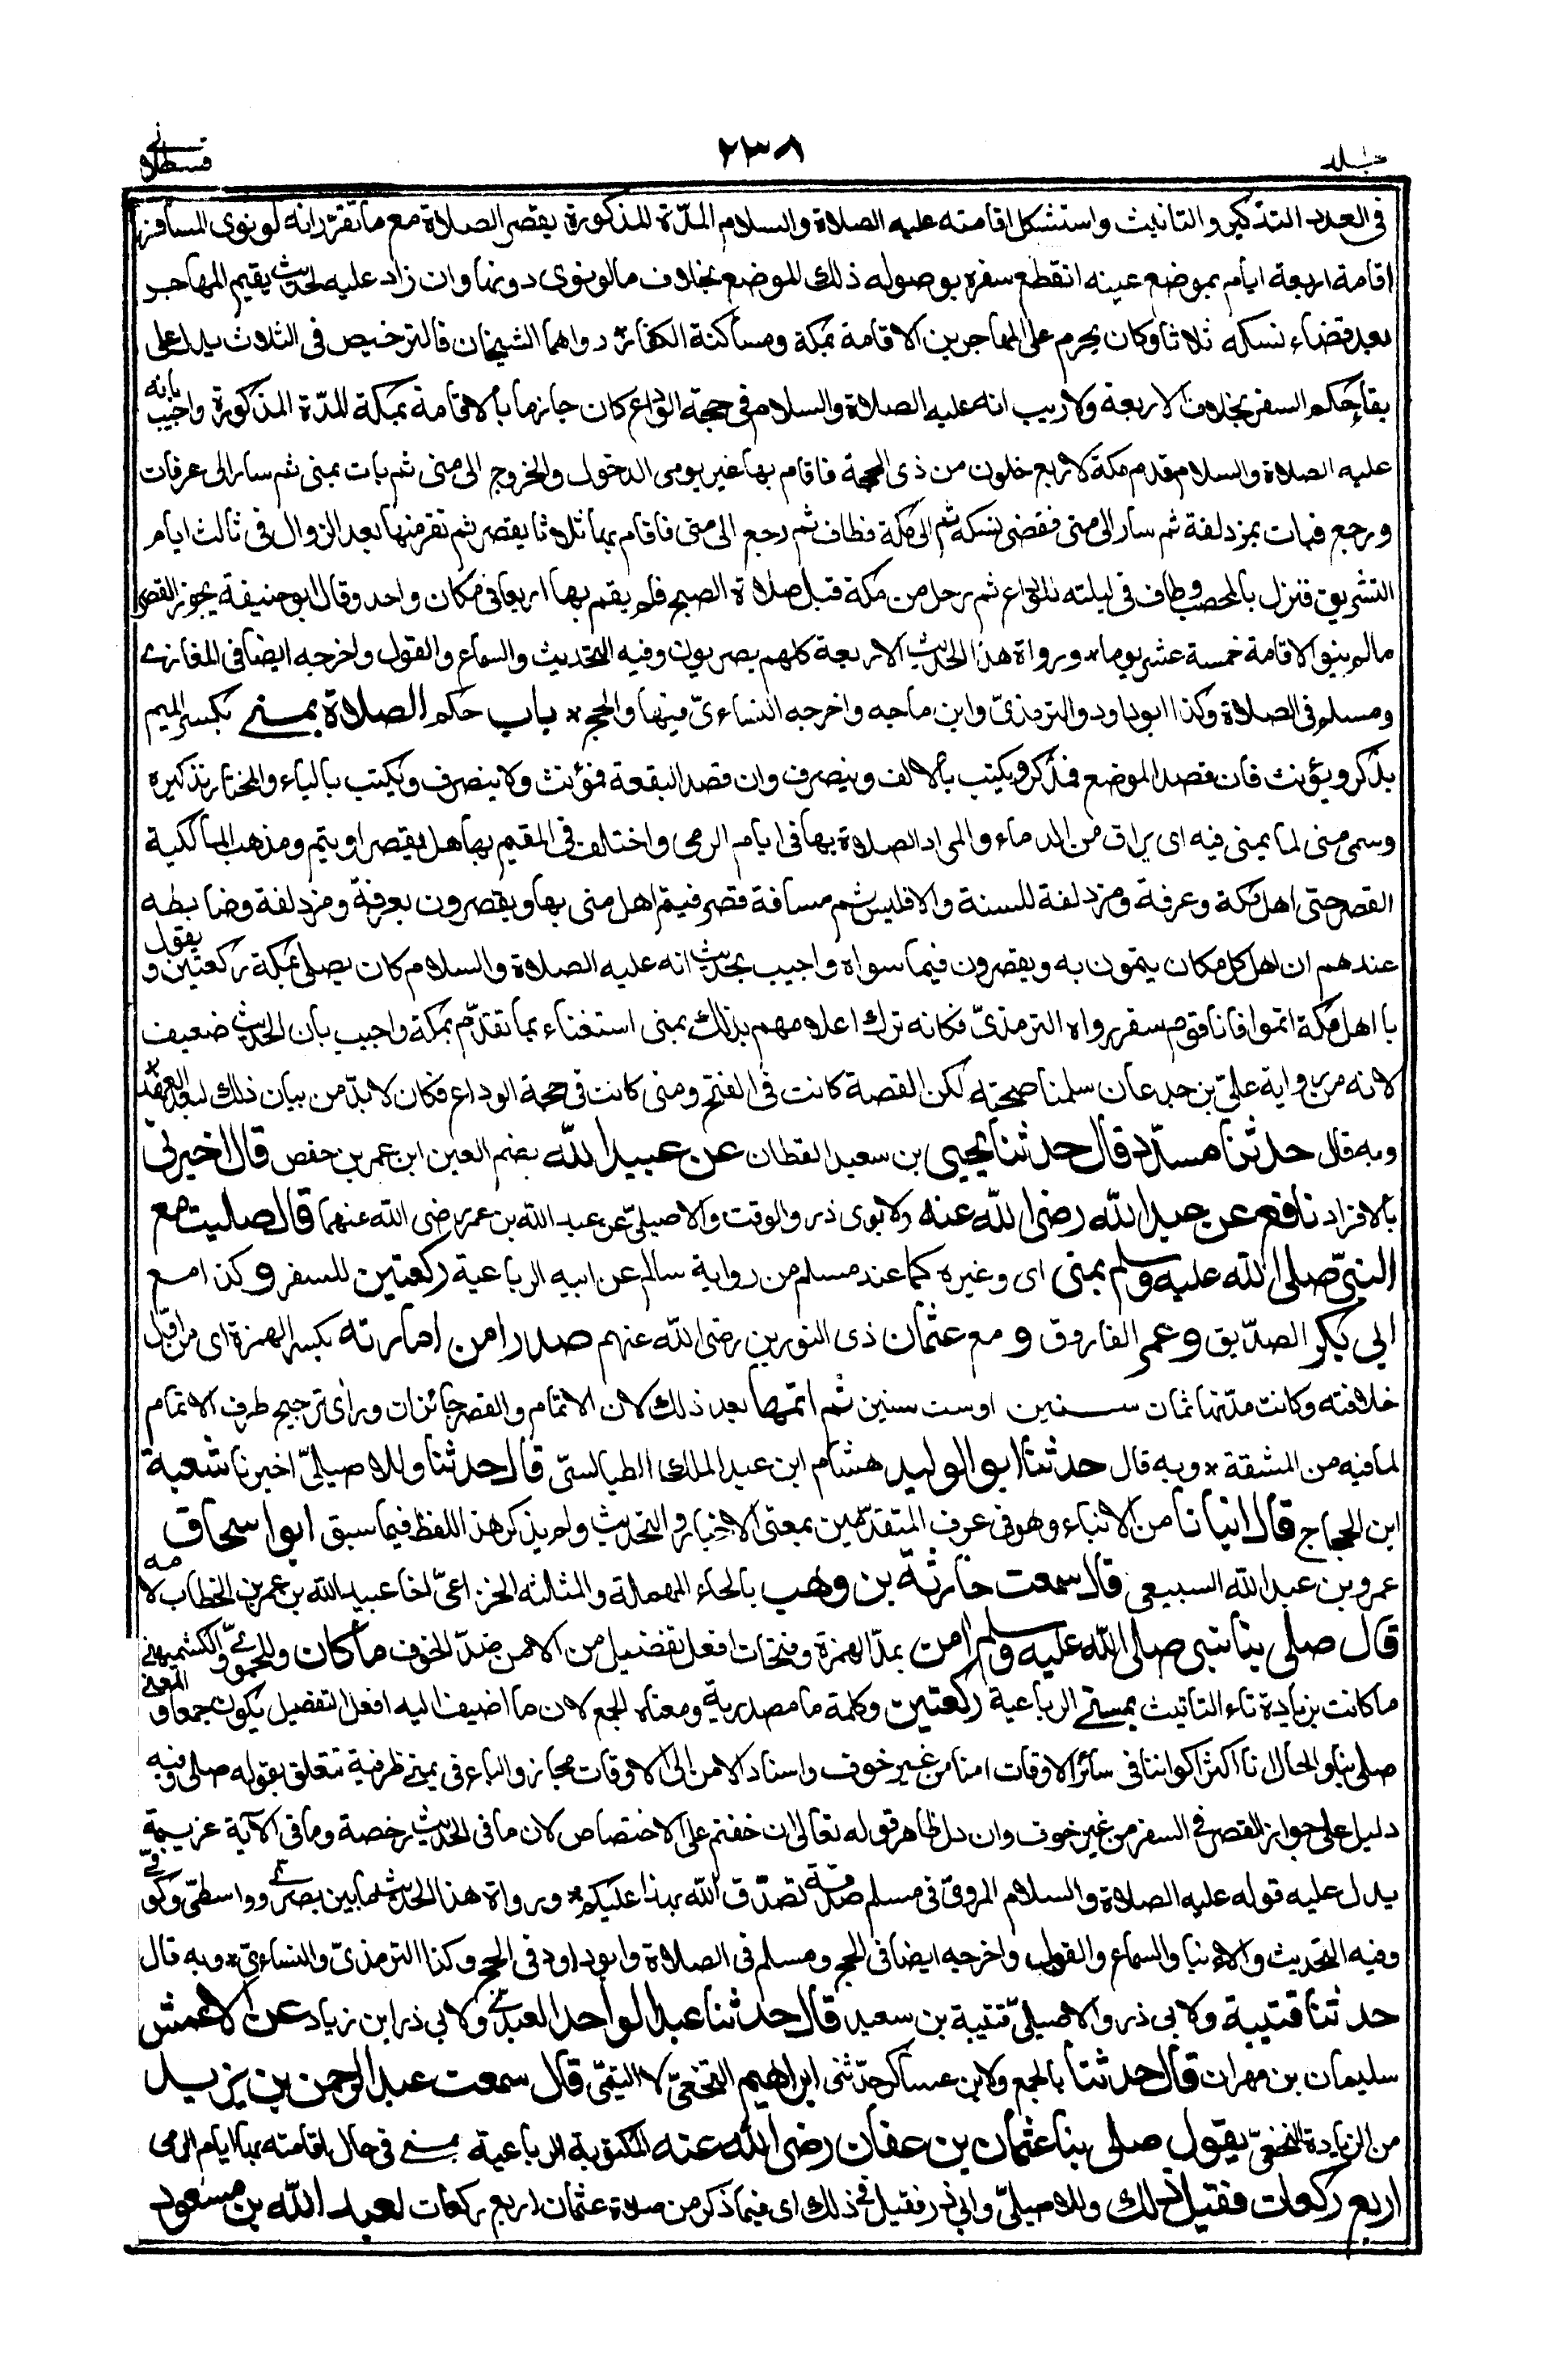 جلد ٢٣٨ قسطلانی
فى العدد التذكير والتانيث واستشكل اقامته عليه الصلاة والسلام المدّة المذكورة يقصر الصلاة مع ما تقرّر انه لو نوى المسافر
اقامة اربعة ايام بموضع عينه انقطع سفره بوصوله ذلك الموضع بخلاف ما لو نوى دونها وان زاد عليه لحديث يقيم المهاجر
بعد قضاء نسكه ثلاثا وكان يحرم على المهاجرين الاقامة بمكة ومساكنة الكفار رواهما الشيخان فالترخيص فى الثلاث يدل على
بقاء حكم السفر بخلاف الاربعة ولا ريب انه عليه الصلاة والسلام فى حجة الوداع كان جازما بالاقامة بمكة المدّة المذكورة واجيب بانه
عليه الصلاة والسلام قدم مكة لاربع خلون من ذى الحجة فاقام بها غير يومى الدخول والخروج الى منى ثم بات بمنى ثم سار الى عرفات
ورجع فبات بمزدلفة ثم سار الى منى فقضى نسكه ثم الى مكة فطاف ثم رجع الى منى فاقام بها ثلاثا يقصر ثم نفر منها بعد الزوال فى ثالث ايام
التشريق فنزل بالمحصب وطاف فى ليلته للوداع ثم رحل من مكة قبل صلاة الصبح فلم يقم بها اربعا فى مكان واحد وقال ابو حنيفة يجوز القصر
مالم ينو الاقامة خمسة عشر يوما * ورواة هذا الحديث الاربعة كلهم بصريون وفيه التحديث والسماع والقول واخرجه ايضا فى المغازى
ومسلم فى الصلاة وكذا ابو داود والترمذىّ وابن ماجه واخرجه النساءىّ فيها والحج * باب حكم الصلاة بمنى بكسر الميم
يذكر ويؤنث فان قصد الموضع فمذكر ويكتب بالالف وينصرف وان قصد البقعة فمؤنث ولا ينصرف ويكتب بالياء والمختار تذكيره
وسمى منى لما يمنى فيه اى يراق من الدماء والمراد الصلاة بها فى ايام الرمى واختلف فى المقيم بها هل يقصر او يتم ومذهب المالكية
القصر حتى اهل مكة وعرفة ومزدلفة للسنة والا فليس ثم مسافة قصر فيتم اهل منى بها ويقصرون بعرفة ومزدلفة وضابطه
عندهم ان اهل كل مكان يتمون به ويقصرون فيما سواه واجيب بحديث انه عليه الصلاة والسلام كان يصلى بمكة ركعتين ويقول
يا اهل مكة اتموا فانا قوم سفر رواه الترمذىّ فكانه ترك اعلامهم بذلك بمنى استغناء بما تقدّم بمكة واجيب بان الحديث ضعيف
لانه من رواية علىّ بن جدعان سلمنا صحته لكن القصة كانت فى الفتح ومنى كانت فى حجة الوداع فكان لابدّ من بيان ذلك لبعد العهد *
وبه قال حدثنا مسدّد قال حدثنا يحيى بن سعيد القطان عن عبيد الله بضم العين ابن عمر بن حفص قال اخبرنى
بالافراد نافع عن عبد الله رضى الله عنه ولابوى ذر والوقت والاصيلىّ عن عبد الله بن عمر رضى الله عنهما قال صليت مع
النبىّ صلى الله عليه وسلم بمنى اى وغيره كما عند مسلم من رواية سالم عن ابيه الرباعية ركعتين للسفر وكذا مع
ابى بكر الصدّيق وعمر الفاروق ومع عثمان ذى النورين رضى الله عنهم صدرا من امارته بكسر الهمزة اى من اوّل
خلافته وكانت مدّتها ثمان سنين اوست سنين ثم اتمّها بعد ذلك لان الاتمام والقصر جائزان وراى ترجيح طرف الاتمام
لما فيه من المشقة * وبه قال حدثنا ابو الوليد هشام ابن عبد الملك الطيالسىّ قال حدثنا وللاصيلىّ اخبرنا شعبة
ابن الحجاج قال انبانا من الانباء وهو فى عرف المتقدّمين بمعنى الاخبار والتحديث ولم يذكر هذا اللفظ فيما سبق ابو اسحاق
عمرو بن عبد الله السبيعى قال سمعت حارثة بن وهب بالحاء المهملة والمثلثه الخزاعىّ اخا عبيد الله بن عمر بن الخطاب لامه
قال صلى بنا النبى صلى الله عليه وسلم آمن بمدّ الهمزة وفتحات افعل تفضيل من الامن ضدّ الخوف ما كان وللحموىّ والكشميهنى
ما كانت بزيادة تاء التانيث بمنى الرباعية ركعتين وكلمة ما مصدرية ومعناه الجمع لان ما اضيف اليه افعل التفضيل يكون جمعا والمعنى
صلى بنا والحال انا اكثر اكواننا فى سائر الاوقات امنا من غير خوف واسناد الامن الى الاوقات مجاز والباء فى بمنى ظرفية تتعلق بقوله صلى وفيه
دليل على جواز القصر فى السفر من غير خوف وان دل ظاهر قوله تعالى ان خفتم على الاختصاص لان ما فى الحديث رخصة وما فى الآية عزيمة
يدل عليه قوله عليه الصلاة والسلام المروىّ فى مسلم صدقة تصدّق الله بها عليكم * ورواة هذا الحديث ما بين بصرىّ وواسطىّ وكوفىّ
وفيه التحديث والانبا والسماع والقول واخرجه ايضا فى الحج ومسلم فى الصلاة وابو داود فى الحج وكذا الترمذىّ والنساءىّ * وبه قال
حدثنا قتيبة ولابى ذر والاصيلىّ قتيبة بن سعيد قال حدثنا عبد الواحد العبدىّ ولابى ذر ابن زياد عن الاعمش
سليمان بن مهران قال حدثنا بالجمع ولابن عساكر حدّثنى ابراهيم النخعىّ لا التيمىّ قال سمعت عبد الرحمن بن يزيد
من الزيادة النخعىّ يقول صلى بنا عثمان بن عفان رضى الله عنه المكتوبة الرباعية بمنى فى حال اقامته بها ايام الرمى
اربع ركعات فقيل ذلك وللاصيلىّ وابى ذر فقيل فى ذلك اى فيما ذكر من صلاة عثمان اربع ركعات لعبد الله بن مسعود